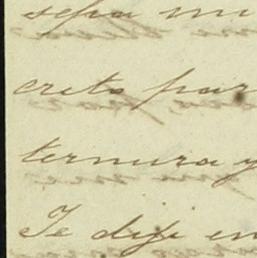 sepa mi
creto par
ternura y
Te dije en